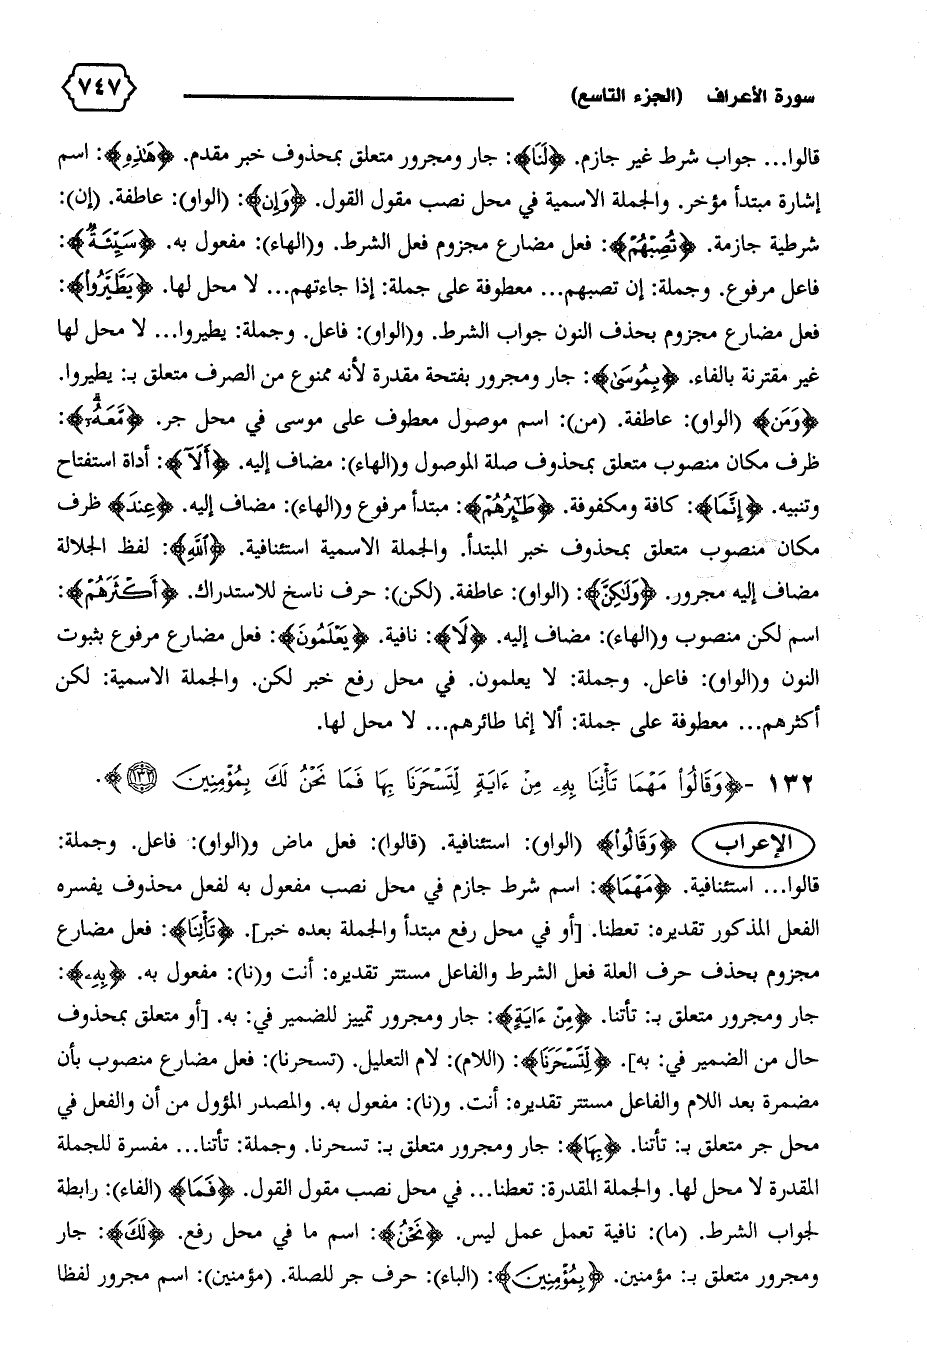 سورة الأعراف (الجزء التاسع) ٧٤٧
قالوا... جواب شرط غير جازم. ﴿لَنَا﴾: جار ومجرور متعلق بمحذوف خبر مقدم. ﴿هَٰذِهِ﴾: اسم
إشارة مبتدأ مؤخر. والجملة الاسمية في محل نصب مقول القول. ﴿وَإِن﴾: (الواو): عاطفة. (إن):
شرطية جازمة. ﴿تُصِبْهُمْ﴾: فعل مضارع مجزوم فعل الشرط. و(الهاء): مفعول به. ﴿سَيِّئَةٌ﴾:
فاعل مرفوع. وجملة: إن تصبهم... معطوفة على جملة: إذا جاءتهم... لا محل لها. ﴿يَطَّيَّرُوا۟﴾:
فعل مضارع مجزوم بحذف النون جواب الشرط. و(الواو): فاعل. وجملة: يطيروا... لا محل لها
غير مقترنة بالفاء. ﴿بِمُوسَىٰ﴾: جار ومجرور بفتحة مقدرة لأنه ممنوع من الصرف متعلق بـ: يطيروا.
﴿وَمَن﴾ (الواو): عاطفة. (من): اسم موصول معطوف على موسى في محل جر. ﴿مَّعَهُۥٓ﴾:
ظرف مكان منصوب متعلق بمحذوف صلة الموصول و(الهاء): مضاف إليه. ﴿أَلَآ﴾: أداة استفتاح
وتنبيه. ﴿إِنَّمَا﴾: كافة ومكفوفة. ﴿طَٰٓئِرُهُمْ﴾: مبتدأ مرفوع و(الهاء): مضاف إليه. ﴿عِندَ﴾ ظرف
مكان منصوب متعلق بمحذوف خبر المبتدأ. والجملة الاسمية استئنافية. ﴿ٱللَّهِ﴾: لفظ الجلالة
مضاف إليه مجرور. ﴿وَلَٰكِنَّ﴾: (الواو): عاطفة. (لكن): حرف ناسخ للاستدراك. ﴿أَكْثَرَهُمْ﴾:
اسم لكن منصوب و(الهاء): مضاف إليه. ﴿لَا﴾: نافية. ﴿يَعْلَمُونَ﴾: فعل مضارع مرفوع بثبوت
النون و(الواو): فاعل. وجملة: لا يعلمون. في محل رفع خبر لكن. والجملة الاسمية: لكن
أكثرهم... معطوفة على جملة: ألا إنما طائرهم... لا محل لها.
١٣٢ - ﴿وَقَالُوا۟ مَهْمَا تَأْتِنَا بِهِۦ مِنْ ءَايَةٍ لِّتَسْحَرَنَا بِهَا فَمَا نَحْنُ لَكَ بِمُؤْمِنِينَ ۝١٣٢﴾.
الإعراب ﴿وَقَالُوا۟﴾ (الواو): استئنافية. (قالوا): فعل ماض و(الواو): فاعل. وجملة:
قالوا... استئنافية. ﴿مَهْمَا﴾: اسم شرط جازم في محل نصب مفعول به لفعل محذوف يفسره
الفعل المذكور تقديره: تعطنا. [أو في محل رفع مبتدأ والجملة بعده خبر]. ﴿تَأْتِنَا﴾: فعل مضارع
مجزوم بحذف حرف العلة فعل الشرط والفاعل مستتر تقديره: أنت و(نا): مفعول به. ﴿بِهِۦ﴾:
جار ومجرور متعلق بـ: تأتنا. ﴿مِنْ ءَايَةٍ﴾: جار ومجرور تمييز للضمير في: به. [أو متعلق بمحذوف
حال من الضمير في: به]. ﴿لِّتَسْحَرَنَا﴾: (اللام): لام التعليل. (تسحرنا): فعل مضارع منصوب بأن
مضمرة بعد اللام والفاعل مستتر تقديره: أنت. و(نا): مفعول به. والمصدر المؤول من أن والفعل في
محل جر متعلق بـ: تأتنا. ﴿بِهَا﴾: جار ومجرور متعلق بـ: تسحرنا. وجملة: تأتنا... مفسرة للجملة
المقدرة لا محل لها. والجملة المقدرة: تعطنا... في محل نصب مقول القول. ﴿فَمَا﴾ (الفاء): رابطة
لجواب الشرط. (ما): نافية تعمل عمل ليس. ﴿نَحْنُ﴾: اسم ما في محل رفع. ﴿لَكَ﴾: جار
ومجرور متعلق بـ: مؤمنين. ﴿بِمُؤْمِنِينَ﴾: (الباء): حرف جر للصلة. (مؤمنين): اسم مجرور لفظا